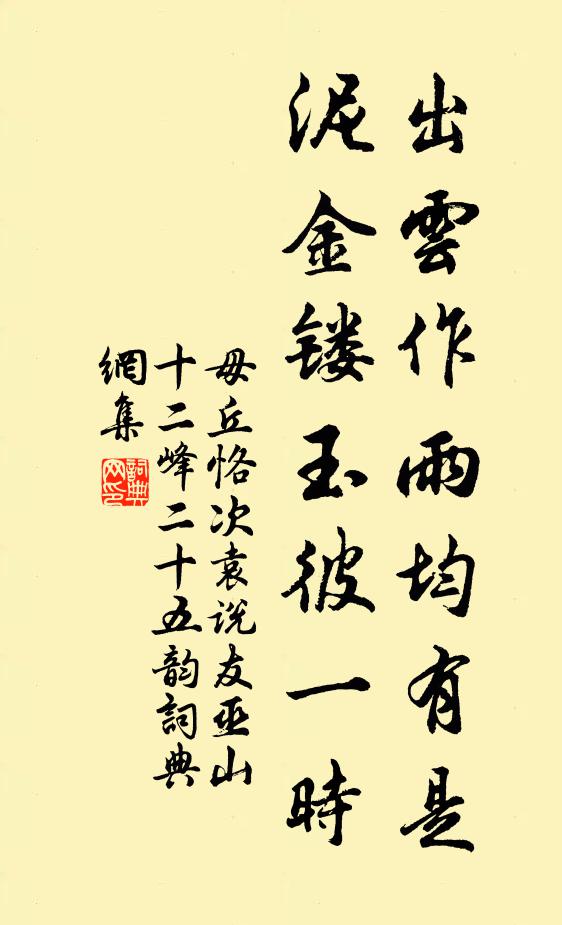 出雲作雨均有是
泥金镂玉彼一時
毋丘恪次袁说友巫山
十二峰二十五韵詞典
網集
詞典网印